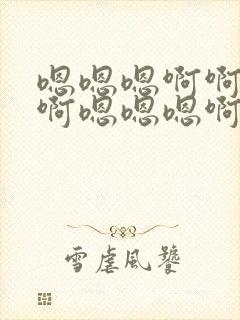 嗯嗯嗯啊啊
啊嗯嗯嗯啊
雪虐风饕